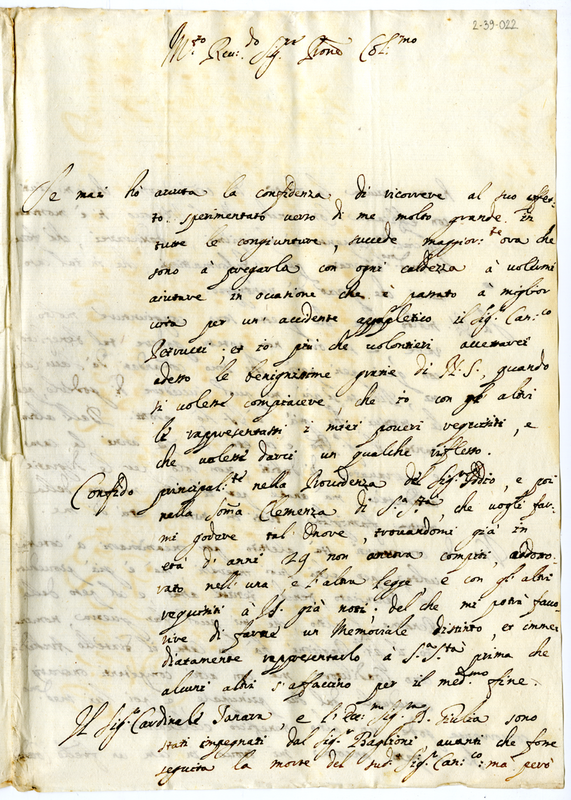 2-39-022
M.to Rev.do Sig.r Prone Col.mo
Se mai hò avuta la confidenza di ricorrere al suo affet-
to sperimentato verso di me molto grande in
tutte le congiunture, succede maggior.te ora che
sono à pregarla con ogni caldezza à volermi
aiutare in occasione che è passato à miglior
vita per un' accidente appopletico il Sig.r Can.co
Petrucci, et io più che volontieri accetterei
adesso le benignissime grazie di N.S., quando
si volesse compiacere, che io con gl' altri
le rappresentassi i miei poveri requisiti, e
che volesse darci un qualche riflesso.
Confido principal.te nella Providenza del Sig.r Iddio, e poi
nella somma Clemenza di S. S.tà, che vogli far-
mi godere tal' onore, trovandomi già in
età d' anni 29 non ancora compiti, addotto-
rato nell' una, e l' altra legge, e con gl' altri
requisiti à V.S. già noti; del che mi potrà favo-
rire di farne un Memoriale distinto, et imme-
diatamente rappresentarlo a S. S.tà prima che
alcuni altri s' affaccino per il med.mo fine.
Il Sig.r Cardinale Tanara, e l' Ecc.ma Sig.ra D. Giulia sono
stati impegnati dal Sig.r Baglioni avanti che fosse
seguita la morte del sud.o Sig.r Can.co: mà però